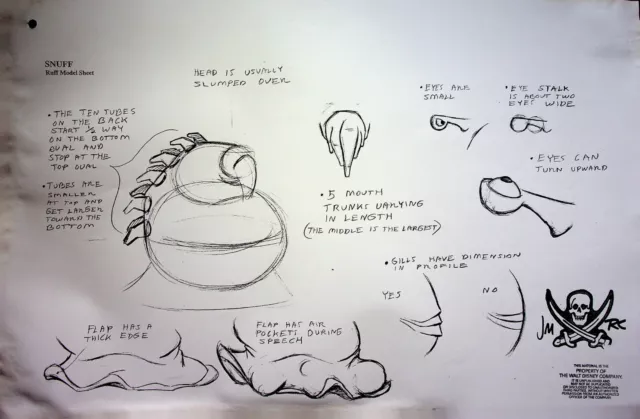 SNUFF
Ruff Model Sheet
HEAD IS USUALLY
SLUMPED OVER
• THE TEN TUBES
ON THE BACK
START 1/2 WAY
ON THE BOTTOM
OVAL AND
STOP AT THE
TOP OVAL
• TUBES ARE
SMALLER
AT TOP AND
GET LARGER
TOWARD THE
BOTTOM
• 5 MOUTH
TRUNKS VARYING
IN LENGTH
(THE MIDDLE IS THE LARGEST)
• EYES ARE
SMALL
• EYE STALK
IS ABOUT TWO
EYES WIDE
• EYES CAN
TURN UPWARD
• GILLS HAVE DIMENSION
IN PROFILE
YES
NO
FLAP HAS A
THICK EDGE
FLAP HAS AIR
POCKETS DURING
SPEECH
JM RC
THIS MATERIAL IS THE
PROPERTY OF
THE WALT DISNEY COMPANY.